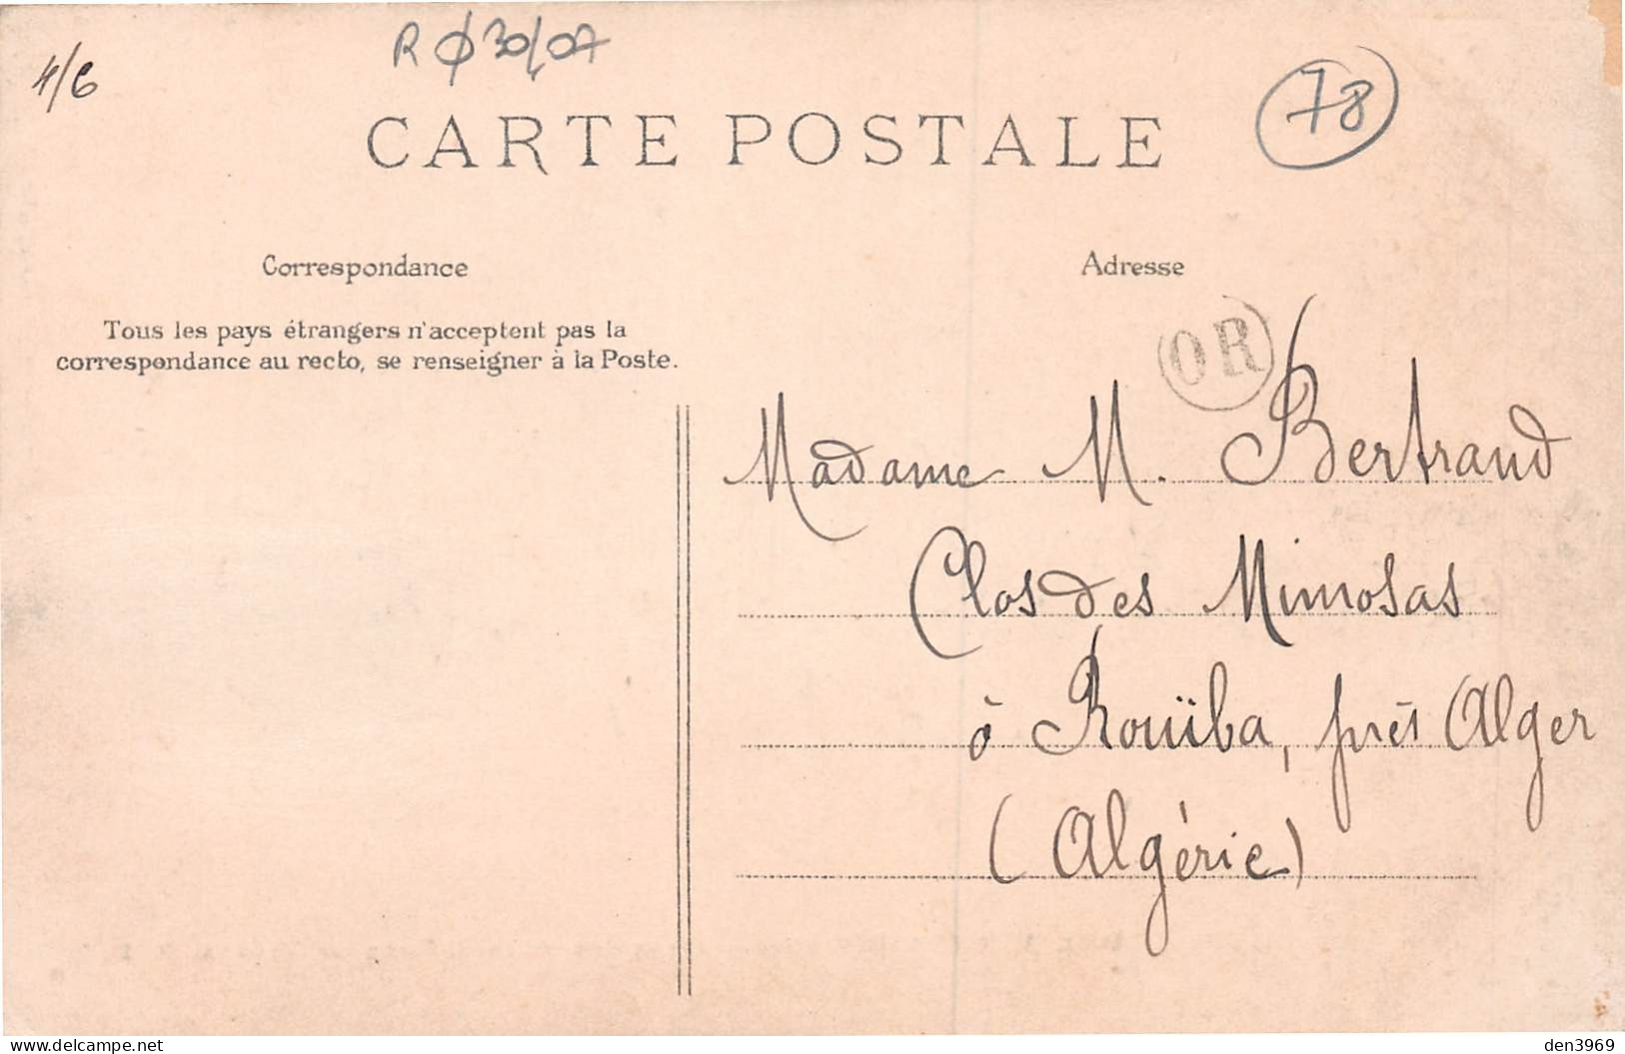 R φ 30/07
4/6
78
CARTE POSTALE
Correspondance
Adresse
Tous les pays étrangers n'acceptent pas la
correspondance au recto, se renseigner à la Poste.
OR
Madame M. Bertrand
Clos des Mimosas
à Rouïba, près Alger
(Algérie)
delcampe.net
den3969